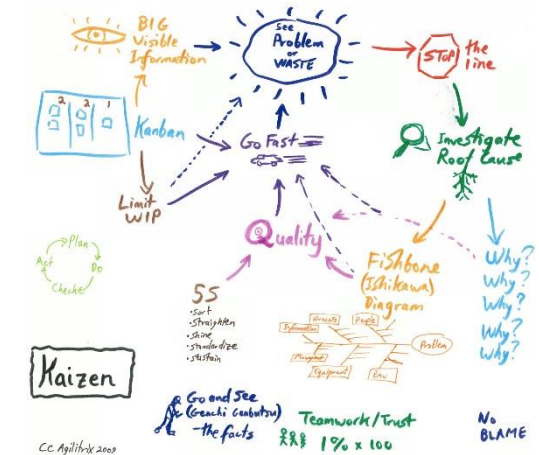 BIG
Visible
Information
See
Problem
or
WASTE
STOP
the
line
2
2
1
Kanban
Go Fast
Investigate
Root Cause
Limit
WIP
Quality
Plan
Do
Checke
Act
5S
•Sort
•Straighten
•Shine
•standardize
•sustain
Fishbone
(Ishikawa)
Diagram
People
Information
Problem
Equipment
Env
Why?
Why?
Why?
Why?
Why?
Kaizen
Go and See
(Genchi Genbutsu)
the facts
Teamwork/Trust
1% x 100
No
BLAME
CC Agilitrix 2009